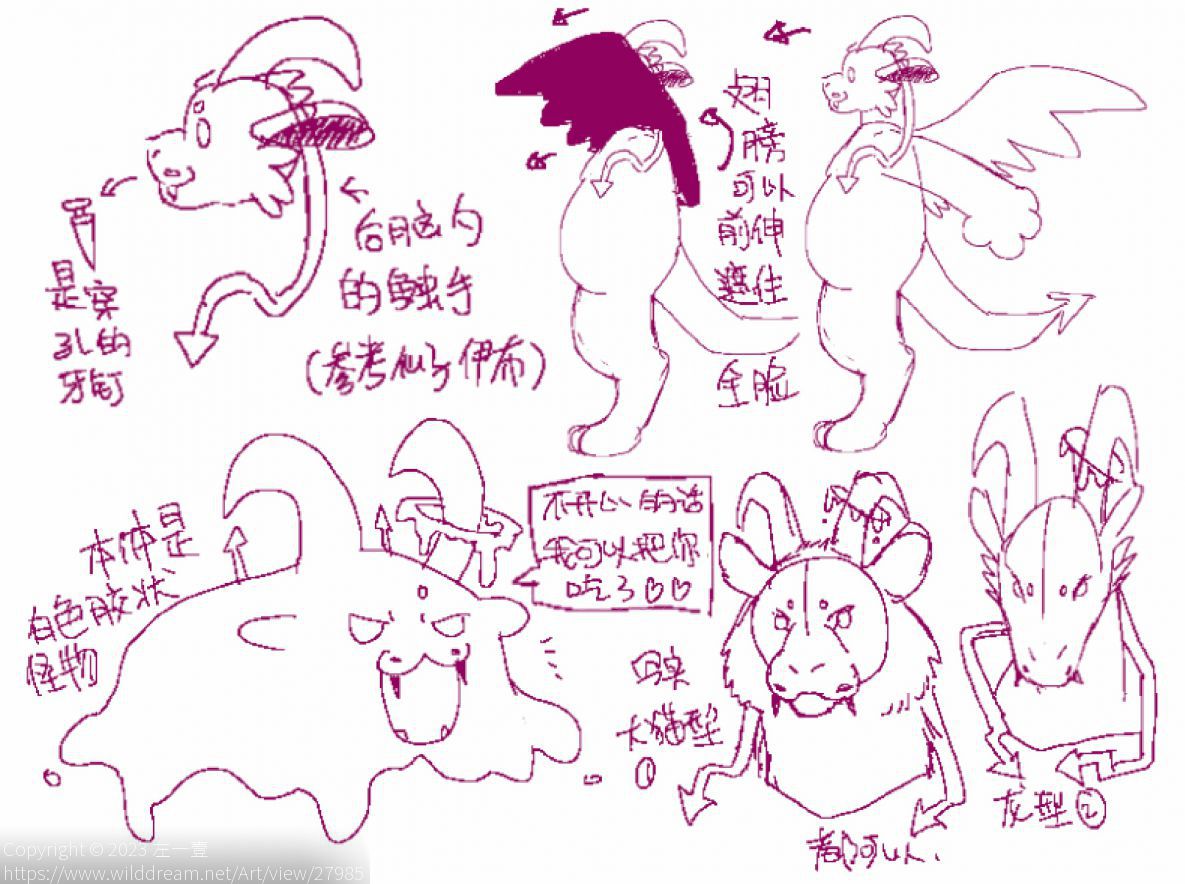 是穿
孔的
牙钉
后脑勺
的触手
(参考仙子伊布)
翅
膀
可以
前伸
遮住
全脸
本体是
白色胶状
怪物
不开心的话
我可以把你
吃了♡♡
写实
大猫型
①
龙型②
都可以.
Copyright © 2023 左一壹
https://www.wilddream.net/Art/view/27985